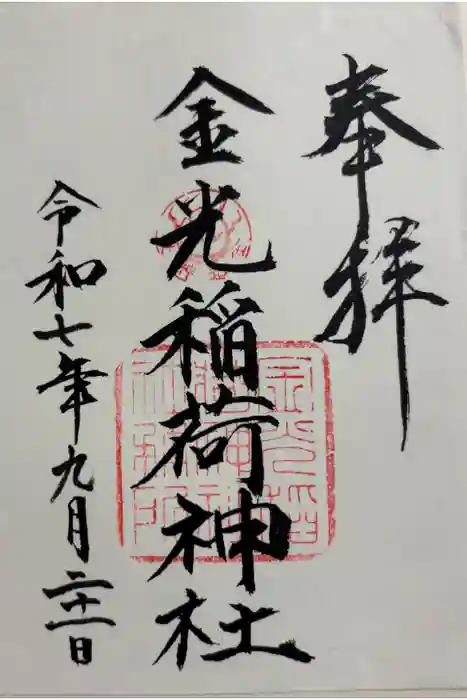 奉拝
金光稲荷神社
令和七年九月二十一日